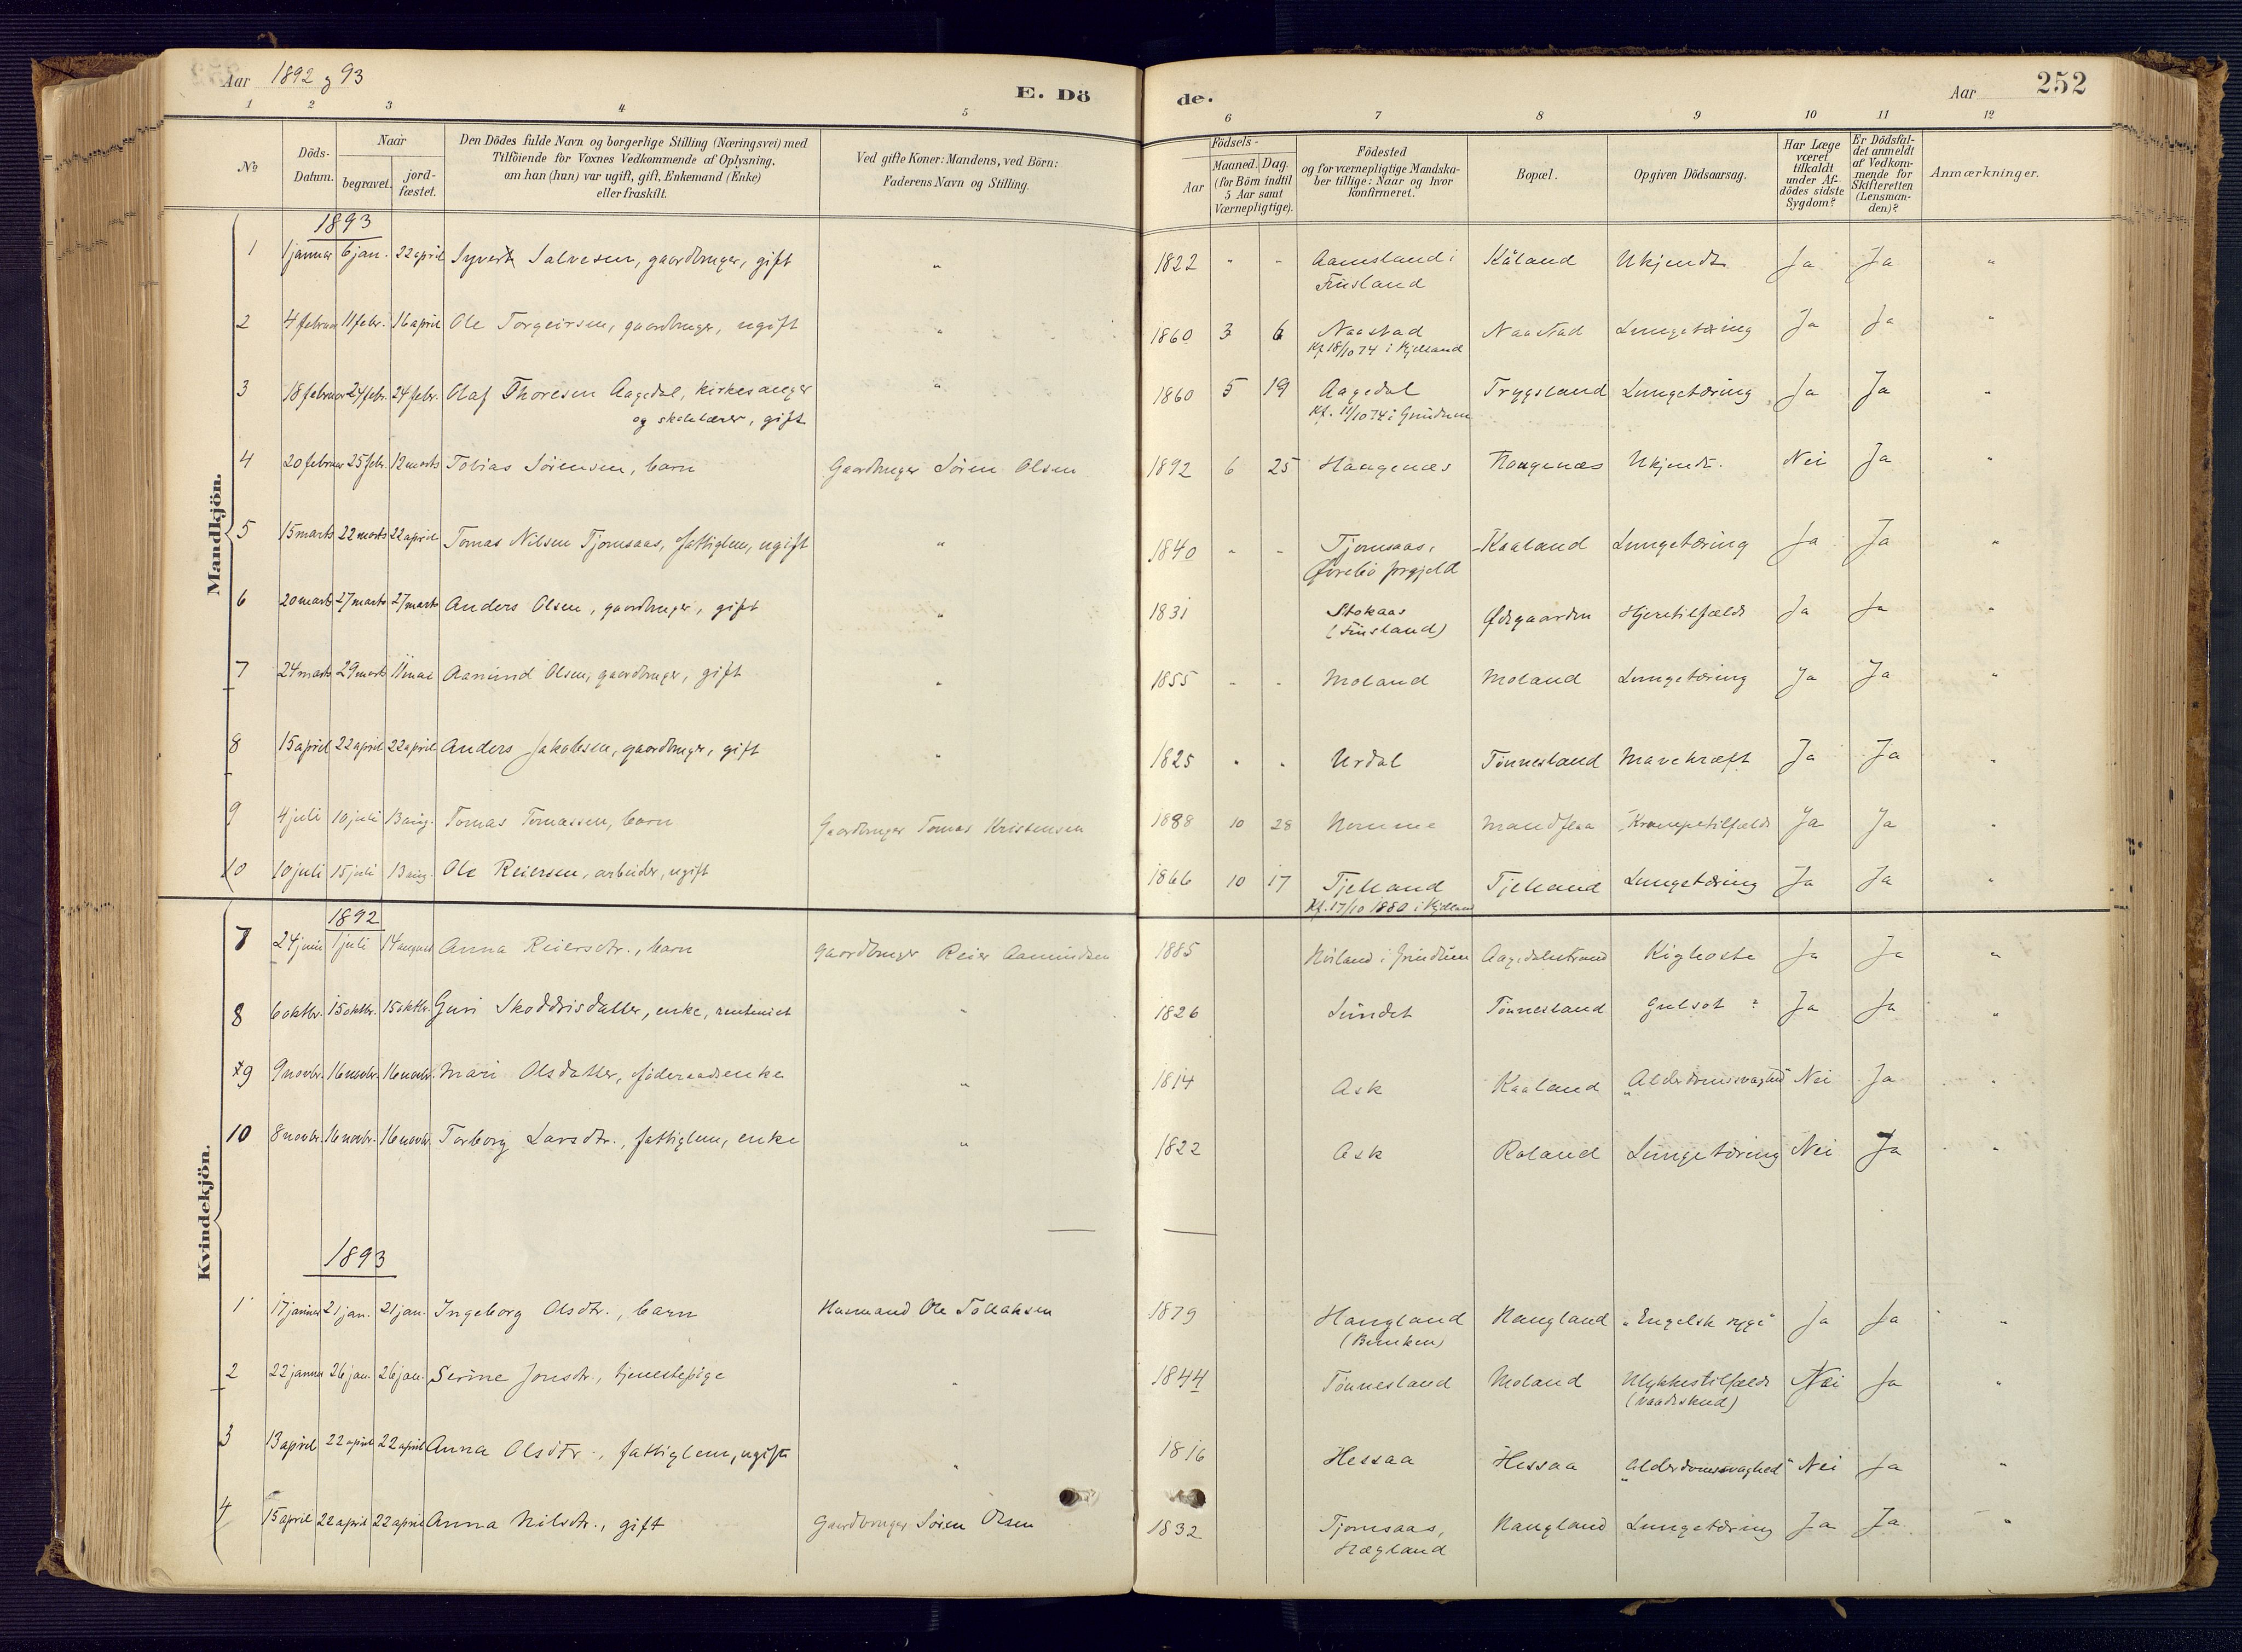 Aar 1892 og 93
E. Dö
de.
Aar
252
1 2 3 4 5 6 7 8 9 10 11 12
No
Döds-Datum.
Naar
begravet.
jord-fæstet.
Den Dödes fulde Navn og borgerlige Stilling (Næringsvei) med
Tilföiende for Voxnes Vedkommende af Oplysning,
om han (hun) var ugift, gift, Enkemand (Enke)
eller fraskilt.
Ved gifte Koner: Mandens, ved Börn:
Faderens Navn og Stilling.
Födsels-
Aar
Maaned. Dag.
(for Börn indtil
5 Aar samt
Værnepligtige).
Födested
og for værnepligtige Mandska-
ber tillige: Naar og hvor
konfirmeret.
Bopæl.
Opgiven Dödsaarsag.
Har Læge
været
tilkaldt
under Af-
dödes sidste
Sygdom?
Er Dödsfal-
det anmeldt
af Vedkom-
mende for
Skifteretten
(Lensman-
den)?
Anmærkninger.
Mandkjön.
1893
1 1 januar 6 jan. 22 april Syvert Salvesen, gaardbruger, gift " 1822 - - Aamsland i Kåland Ukjendt Ja Ja "
Finsland
2 4 februar 11 febr. 16 april Ole Torgeirsen, gaardbruger, ugift " 1860 3 6 Naastad Naastad Lungetæring Ja Ja "
Kf 18/10 74 i Kjelland
3 18 februar 24 febr. 24 febr. Olaf Thoresen Aagedal, kirkesanger " 1860 5 19 Aagedal Trygsland Lungetæring Ja Ja "
og skolelærer, gift Kf. 11/10 74 i Grindum
4 20 februar 25 febr. 12 marts Tobias Sörensen, barn Gaardbruger Sören Olsen 1892 6 25 Haugenæs Haugenæs Ukjendt. Nei Ja "
5 15 marts 22 marts 22 april Tomas Nilsen Tjomsaas, fattiglem, ugift " 1840 - - Tjomsaas, Kaaland Lungetæring Ja Ja "
Øvrebö prgjeld
6 20 marts 27 marts 27 marts Anders Olsen, gaardbruger, gift " 1831 Stokaas Ødegaarden Hjertetilfælde Ja Ja "
(Finsland)
7 24 marts 29 marts 11 mai Aamund Olsen, gaardbruger, gift " 1855 - - Moland Moland Lungetæring Ja Ja "
8 15 april 22 april 22 april Anders Jakobsen, gaardbruger, gift " 1825 " " Urdal Tönnesland Mavekræft Ja Ja "
9 4 juli 10 juli 13 aug. Tomas Tomassen, barn Gaardbruger Tomas Kristensen 1888 10 28 Homme Mandflaa Krampetilfælde Ja Ja "
10 10 juli 15 juli 13 aug. Ole Reiersen, arbeider, ugift 1866 10 17 Tjelland Tjelland Lungetæring Ja Ja "
Kf. 17/10 1880 i Kjelland
Kvindekjön.
1892
7 24 juni 1 juli 14 august Anna Reiersdtr., barn gaardbruger Reier Aamundsen 1885 Höiland i Grindum Kighoste Ja Ja "
8 6 oktbr. 15 oktbr. 15 oktbr. Guri Skoddrisdatter, enke, " 1826 Sundet Tönnesland Gulsot ? Ja Ja "
9 9 novbr. 16 novbr. 16 novbr. Mari Olsdatter, föderaadsenke " 1814 Ask Kaaland "Alderdomssvaghed" Nei Ja "
10 8 novbr. 16 novbr. 16 novbr. Torborg Larsdtr., fattiglem, enke " 1822 Ask Roland Lungetæring Nei Ja "
1893
1 17 januar 21 jan. 21 jan. Ingeborg Olsdtr., barn Husmand Ole Tollaksen 1879 Haugland Haugland "Engelsk syge" Ja Ja "
(Bunken)
2 22 januar 26 jan. 26 jan. Serine Jonsdtr., tjenestepige " 1844 Tönnesland Moland Ulykkestilfælde Nei Ja "
(vaadeskud)
3 13 april 22 april 22 april Anna Olsdtr., fattiglem, ugift " 1816 Hessaa Hessaa "Alderdomssvaghed" Nei Ja "
4 15 april 22 april 22 april Anna Nilsdtr., gift Gaardbruger Sören Olsen 1832 Tjomsaas, Haugland Lungetæring Ja Ja "
Hægland